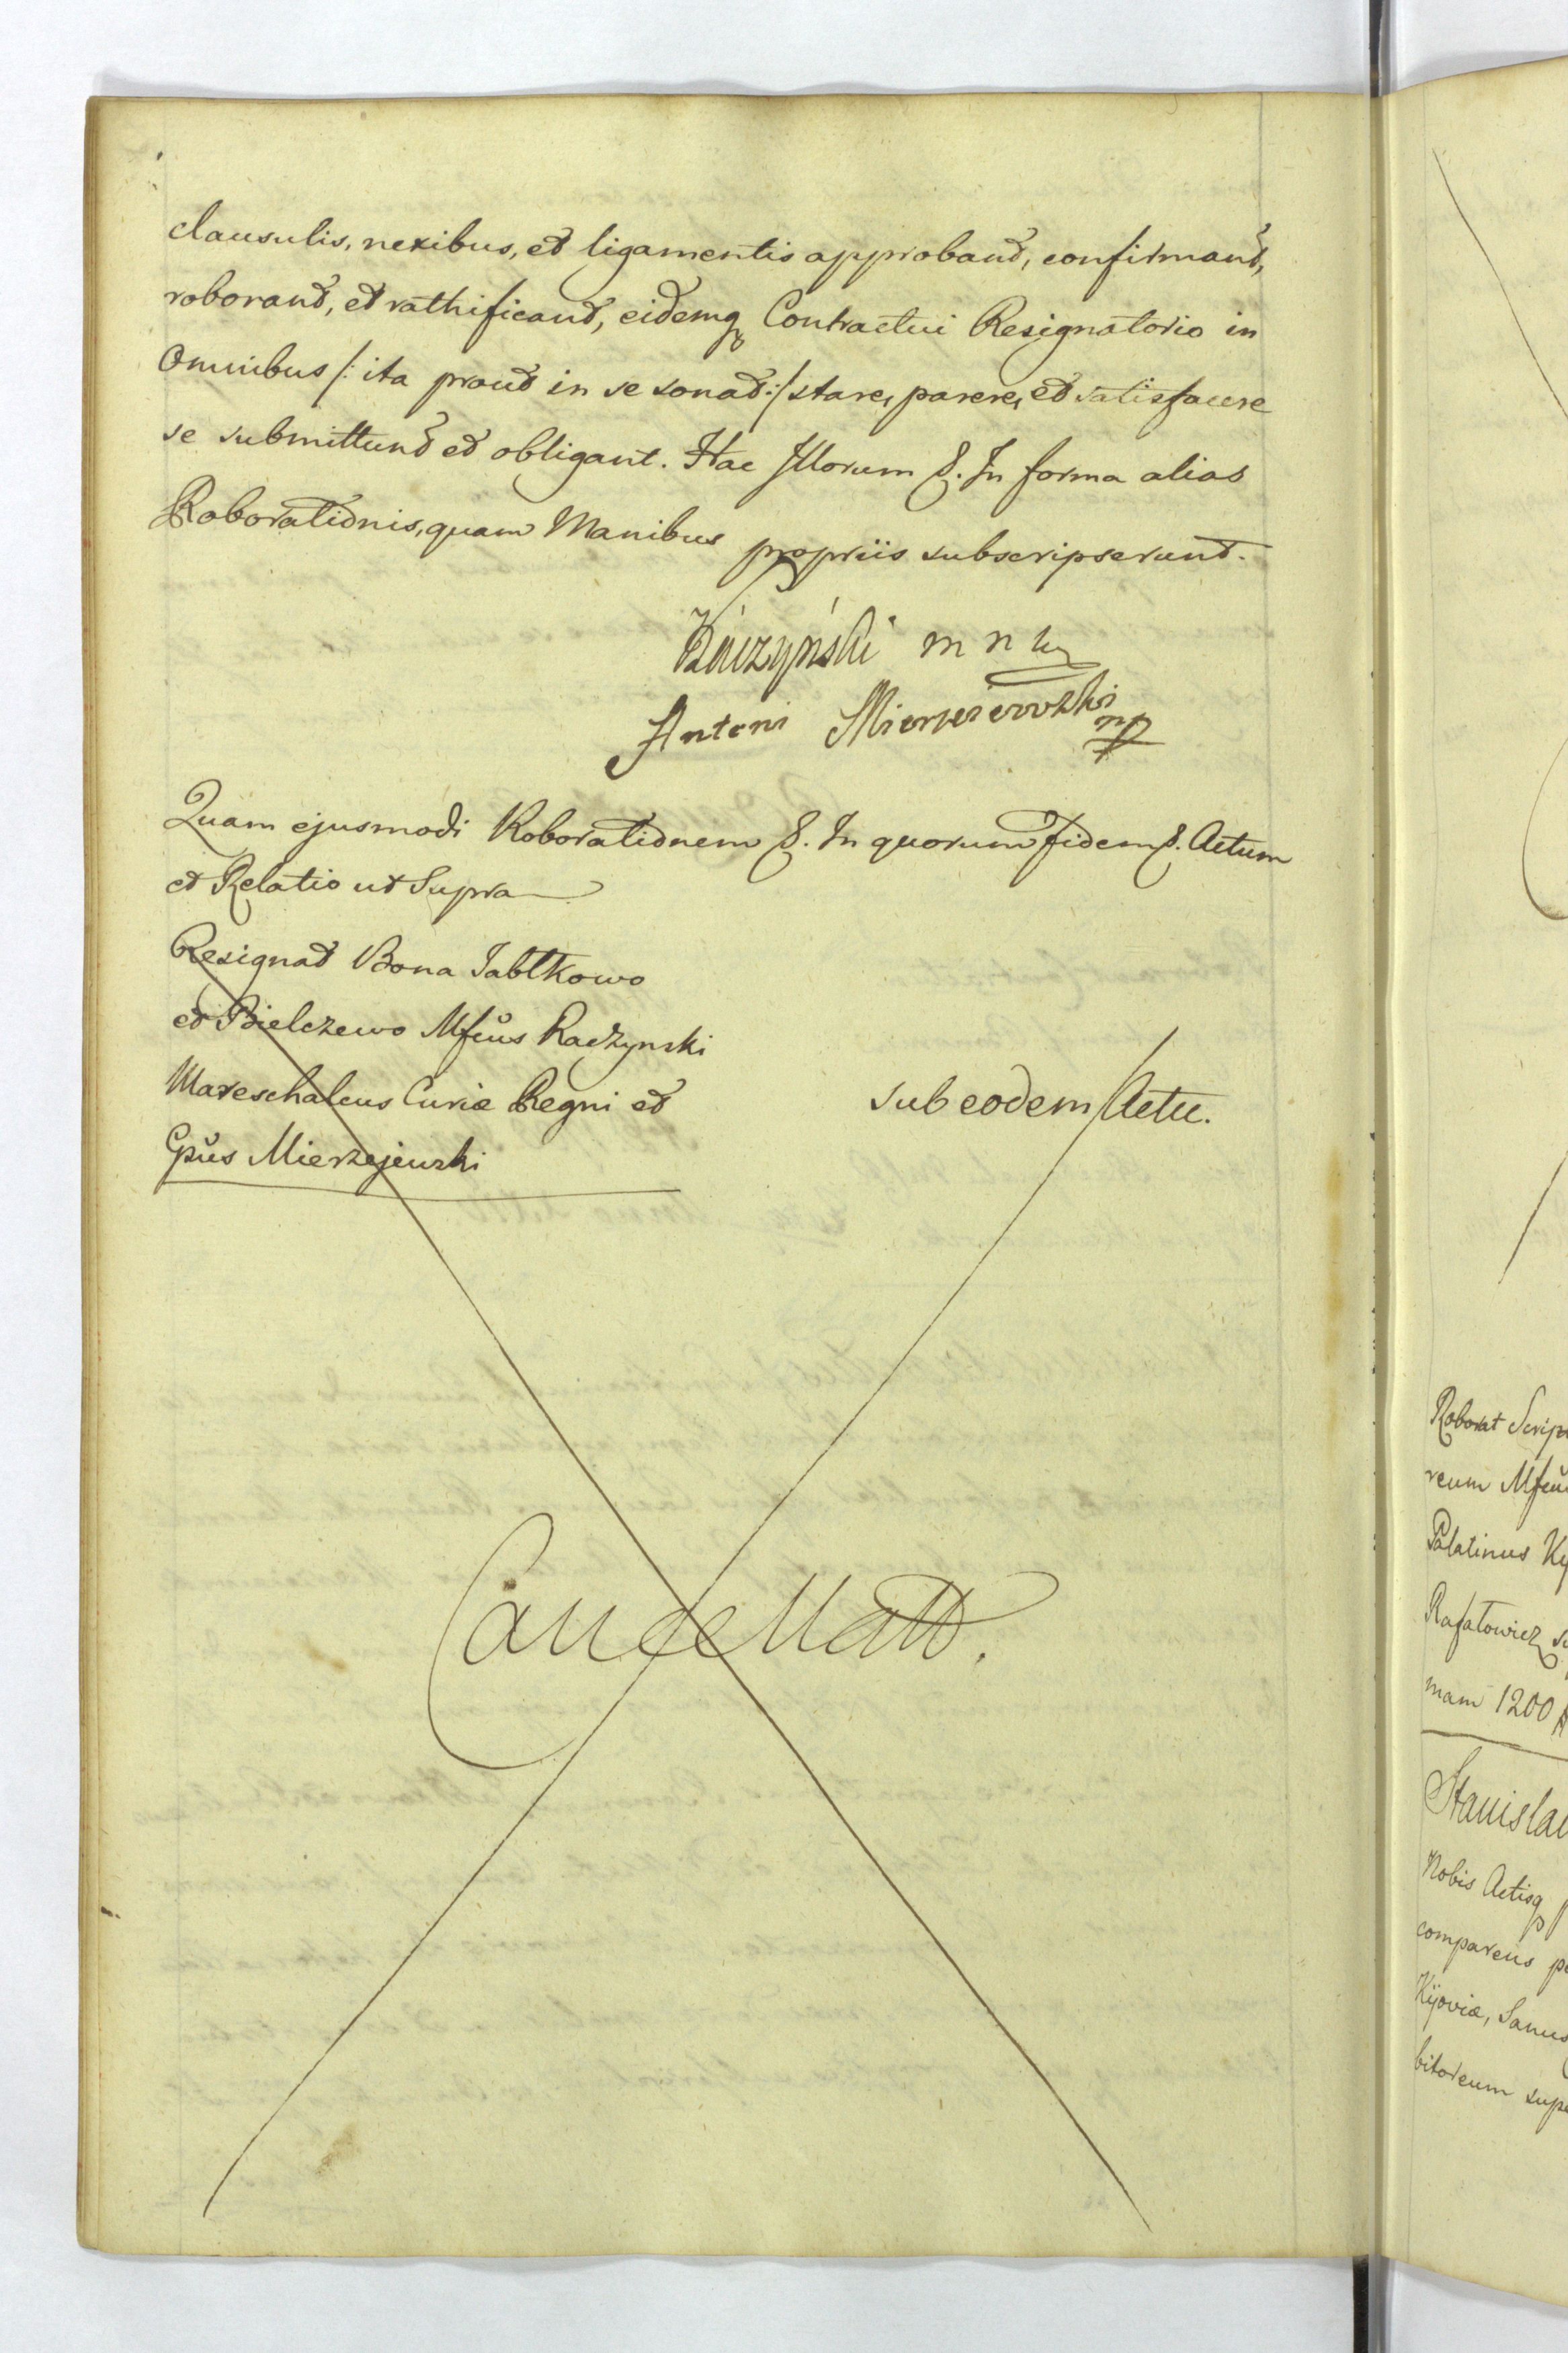 clausulis, nexibus, et ligamentis approband, confirmand,
roborand, et rathificand, eidemq Contractui Resignatorio in
Omnibus /: ita prout in se sonat :/ stare, parere, et satisfacere
se submittunt et obligant. Hac Illorum &. In forma alias
Roborationis, quam Manibus propriis subscripserunt.
Raczyński m n
Antoni Mierzeiewski mp
Quam ejusmodi Roborationem &. In quorum Fidem &. Actum
et Relatio ut Supra
Resignat Bona Jabłkowo
et Bielczewo Mfcus Raczynski
Mareschalcus Curiæ Regni et
Gpus Mierzejewski
sub eodem Actu.
Cancellatt.
Roborat Scrip
reum Mfcu
Palatinus Ky
Rafałowicz
mam 1200
Stanisla
Nobis Actisq
comparens
Kijoviæ, Sanus
bitoreum supe